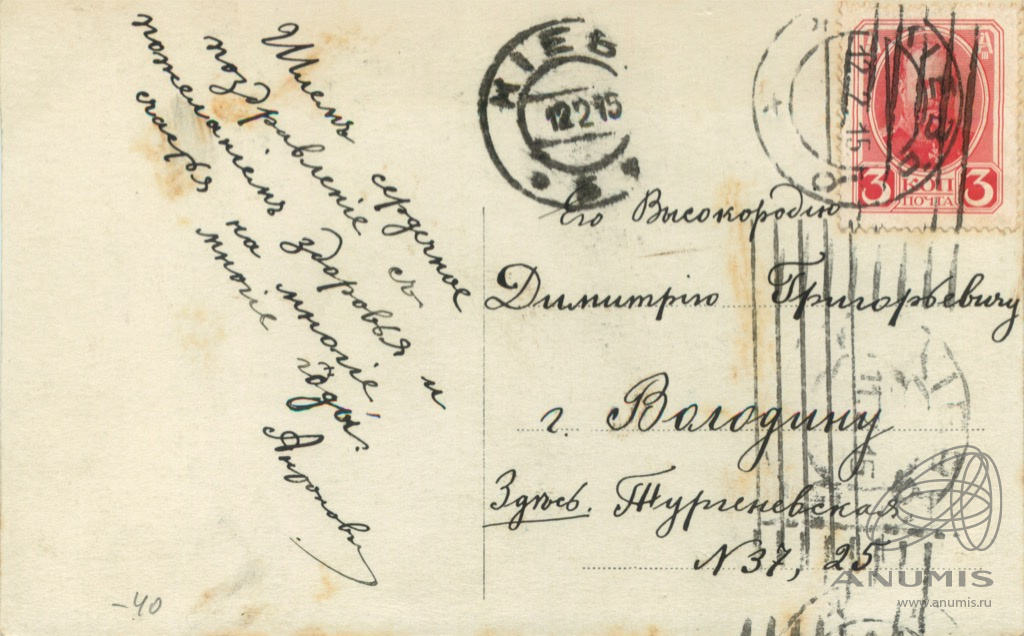 Шлемъ сердечное
поздравленіе съ
пожеланіемъ здоровья и
счастья на многіе,
многіе годы.
Антоновы
КІЕВ
12 2 15
* 5 *
КІЕВЪ
12 2 15
3 КОП 3
ПОЧТА
Его Высокородію
Димитрію Григорьевичу
г. Володину
Здѣсь. Тургеневская
N 37, 25
-40
ANUMIS
www.anumis.ru